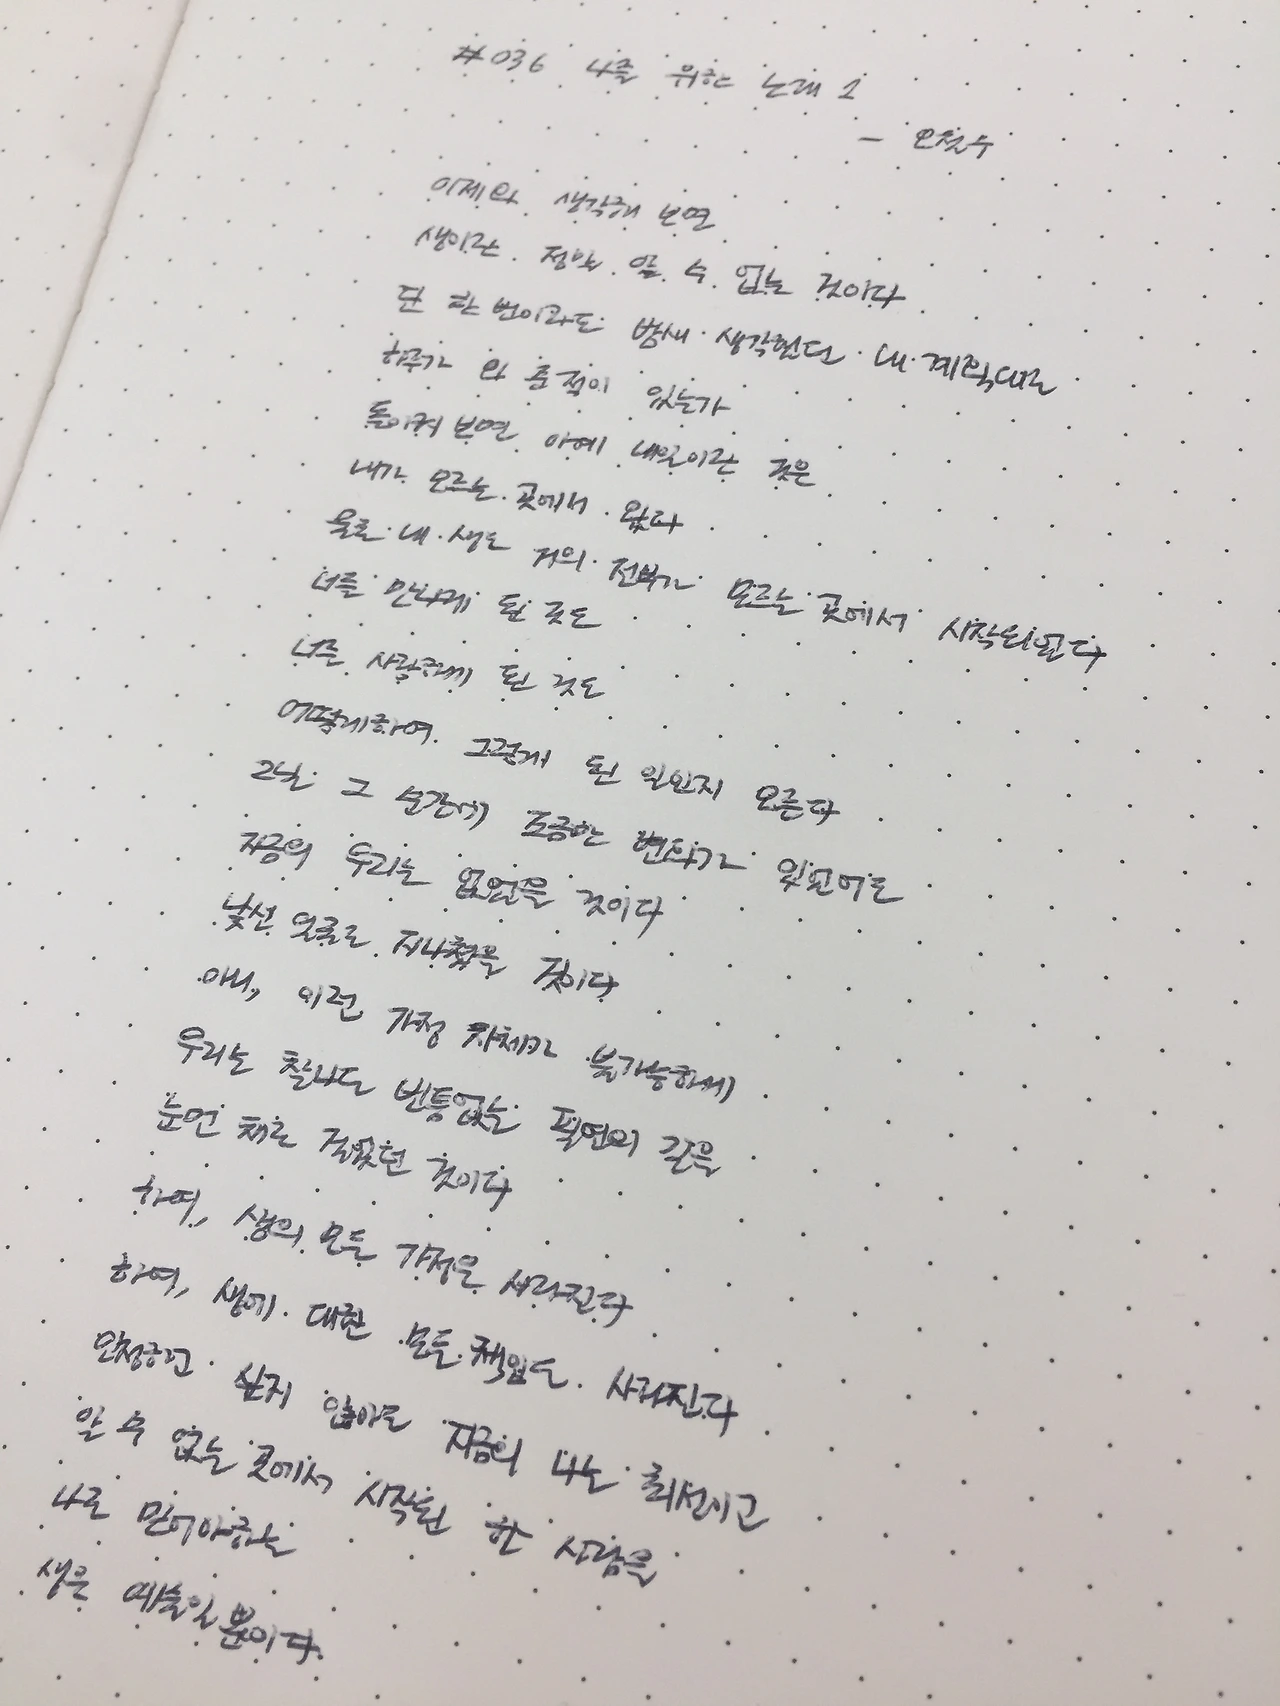 #036 나를 위한 노래 1
- 오철수
이제와 생각해 보면
생이란 정말 알 수 없는 것이다
단 한 번이라도 밤새 생각했던 내 계획대로
하루가 와 준 적이 있는가
돌이켜 보면 아예 내일이란 것은
내가 모르는 곳에서 왔다
물론 내 생도 거의 전부가 모르는 곳에서 시작되었다
너를 만나게 된 것도
너를 사랑하게 된 것도
어떻게하여 그렇게 된 일인지 모른다
그날 그 순간에 조금만 변화가 있었어도
지금의 우리는 없었을 것이다
낯선 얼굴로 지나쳤을 것이다
아니, 이런 가정 자체가 불가능하게
우리는 찰나도 빈틈없는 필연의 길을
눈먼 채로 걸었던 것이다
하여, 생의 모든 가정은 사라진다
하여, 생에 대한 모든 책임도 사라진다
인정하고 싶지 않아도 지금의 나는 최선이고
알 수 없는 곳에서 시작된 한 사람을
나로 믿어야하는
생은 예술일 뿐이다.